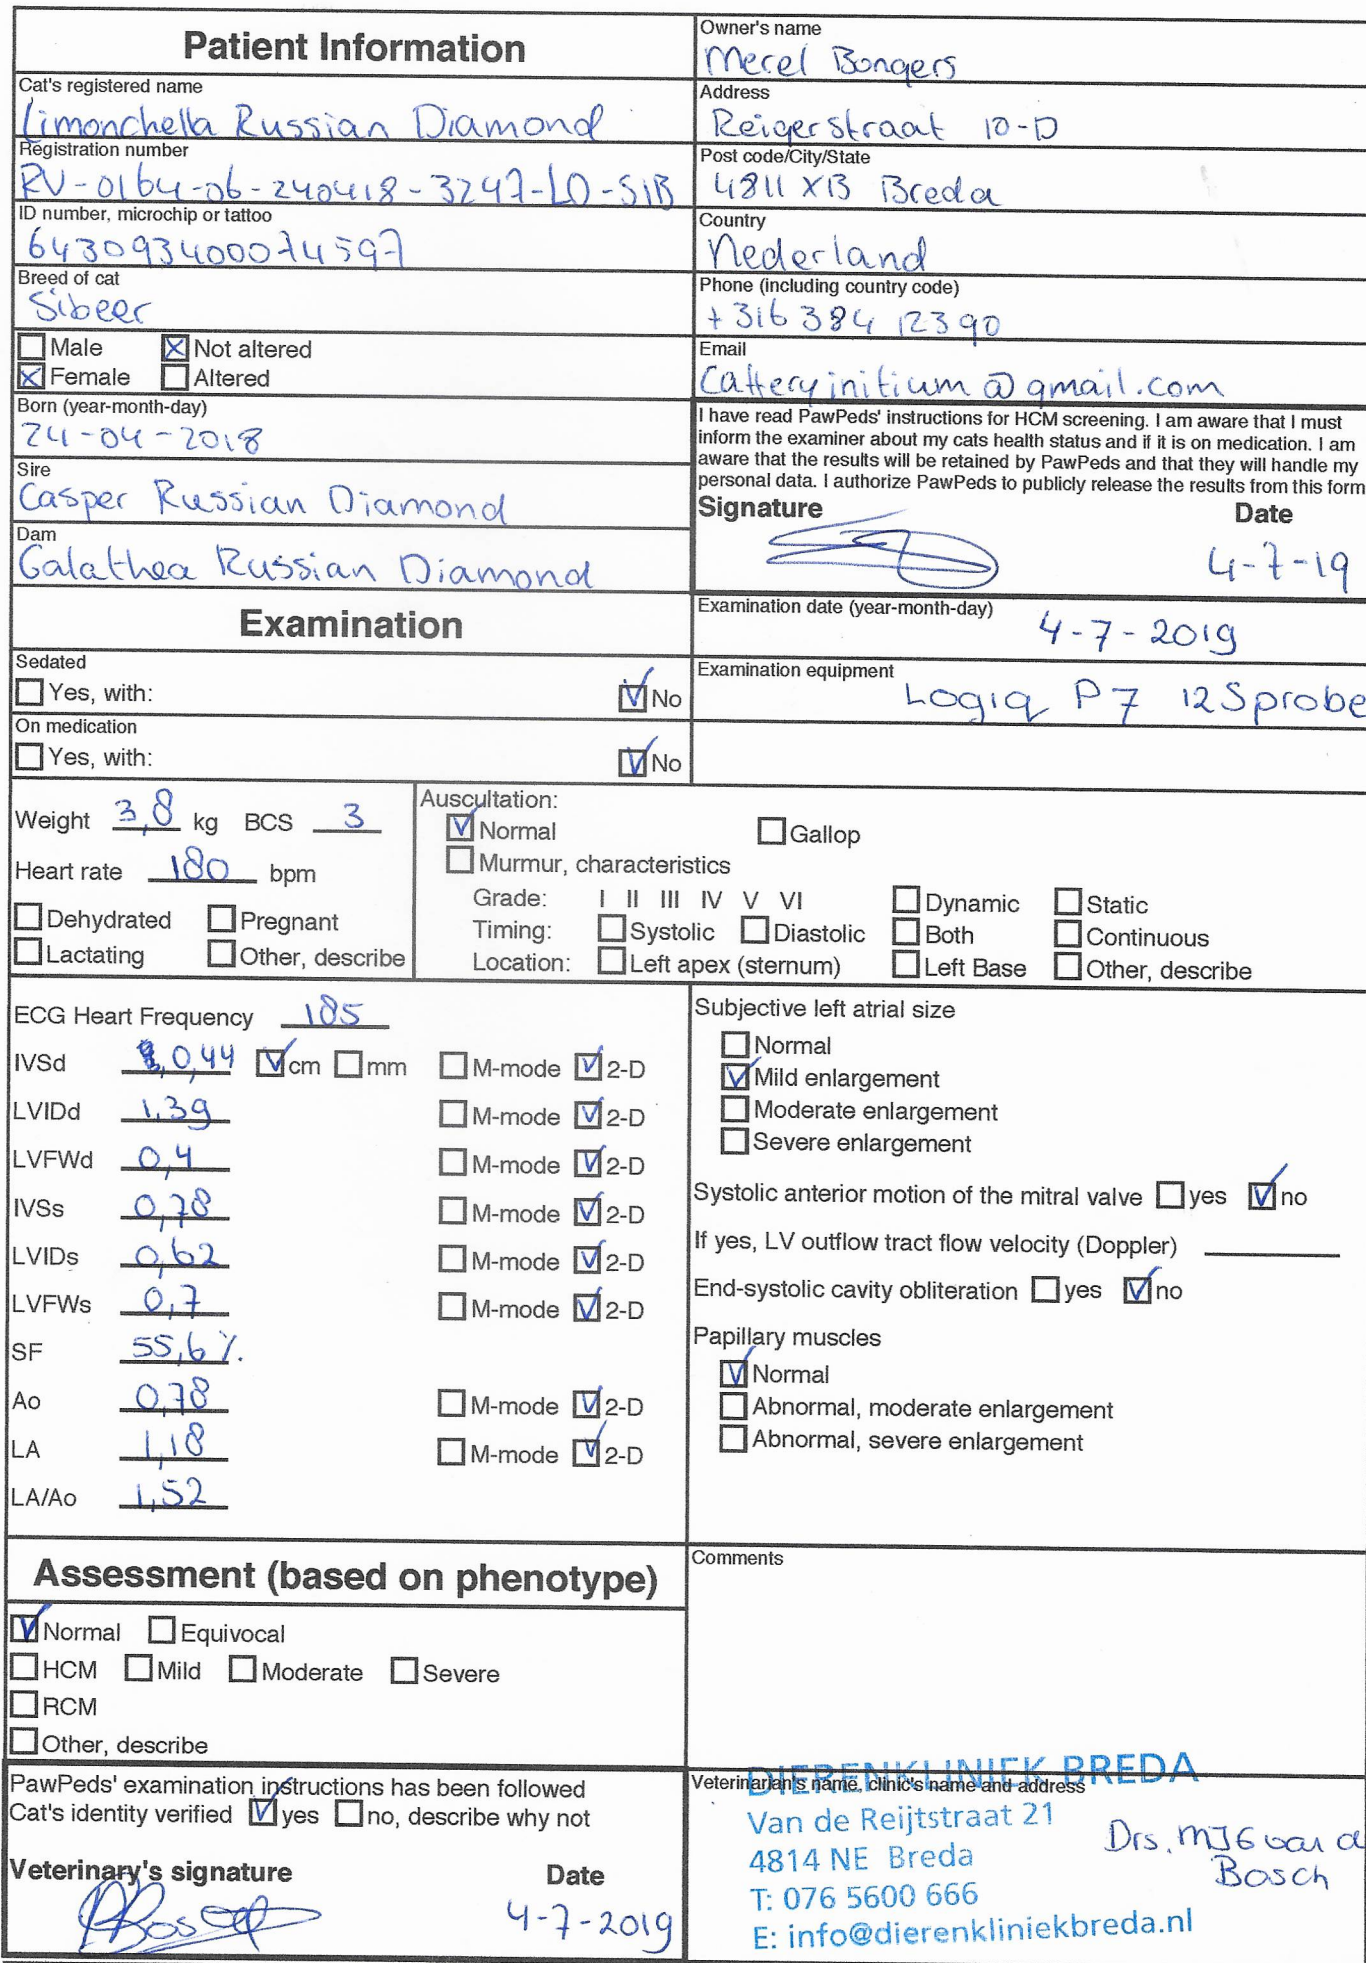 Patient Information
Owner's name
Merel Bongers
Cat's registered name
Limonchella Russian Diamond
Address
Reigerstraat 10-D
Registration number
RV-0164-06-240418-3247-LO-SIB
Post code/City/State
4811 XB Breda
ID number, microchip or tattoo
643093400074597
Country
Nederland
Breed of cat
Sibeer
Phone (including country code)
+316 384 12390
Male Not altered
Female Altered
Email
Catteryinitium@gmail.com
Born (year-month-day)
24-04-2018
I have read PawPeds' instructions for HCM screening. I am aware that I must
inform the examiner about my cats health status and if it is on medication. I am
aware that the results will be retained by PawPeds and that they will handle my
personal data. I authorize PawPeds to publicly release the results from this form
Sire
Casper Russian Diamond
Signature Date
4-7-19
Dam
Galathea Russian Diamond
Examination
Examination date (year-month-day) 4-7-2019
Sedated
Yes, with: No
Examination equipment Logiq P7 12Sprobe
On medication
Yes, with: No
Weight 3,8 kg BCS 3
Heart rate 180 bpm
Dehydrated Pregnant
Lactating Other, describe
Auscultation:
Normal Gallop
Murmur, characteristics
Grade: I II III IV V VI Dynamic Static
Timing: Systolic Diastolic Both Continuous
Location: Left apex (sternum) Left Base Other, describe
ECG Heart Frequency 185
IVSd 0,44 cm mm M-mode 2-D
LVIDd 1,39 M-mode 2-D
LVFWd 0,4 M-mode 2-D
IVSs 0,78 M-mode 2-D
LVIDs 0,62 M-mode 2-D
LVFWs 0,7 M-mode 2-D
SF 55,6%.
Ao 0,78 M-mode 2-D
LA 1,18 M-mode 2-D
LA/Ao 1,52
Subjective left atrial size
Normal
Mild enlargement
Moderate enlargement
Severe enlargement
Systolic anterior motion of the mitral valve yes no
If yes, LV outflow tract flow velocity (Doppler)
End-systolic cavity obliteration yes no
Papillary muscles
Normal
Abnormal, moderate enlargement
Abnormal, severe enlargement
Assessment (based on phenotype)
Normal Equivocal
HCM Mild Moderate Severe
RCM
Other, describe
Comments
PawPeds' examination instructions has been followed
Cat's identity verified yes no, describe why not
Veterinary's signature Date
4-7-2019
Veterinarian's name, clinic's name and address
DIERENKLINIEK BREDA
Van de Reijtstraat 21
4814 NE Breda
T: 076 5600 666
E: info@dierenkliniekbreda.nl
Drs. MJG van d
Bosch